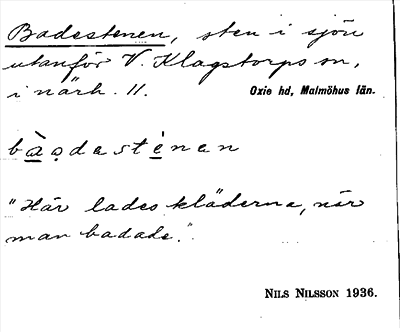 Badestenen, sten i sjön
utanför V. Klagstorps sn,
i närh. 11. Oxie hd, Malmöhus län.
bàọdasténan
"Här lades kläderna, när
man badade."
NILS NILSSON 1936.